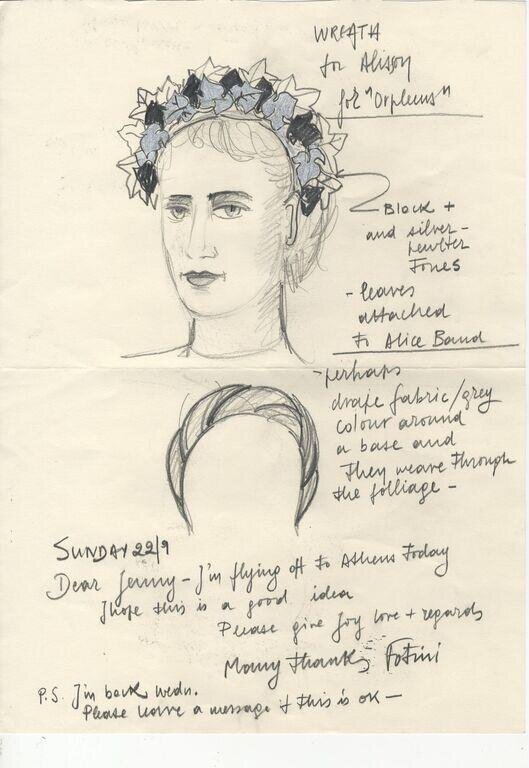 WREATH
for Alison
for "Orpheus"
Black +
and silver-
pewter
Tones
- leaves
attached
to Alice Band
- perhaps
drape fabric/grey
colour around
a base and
They weave through
the folliage -
SUNDAY 22/9
Dear Jenny - I'm flying off to Athens Today
I hope this is a good idea
Please give Joy love + regards
Many thanks Fotini
P.S. I'm back Wedn.
Please leave a message if this is ok -